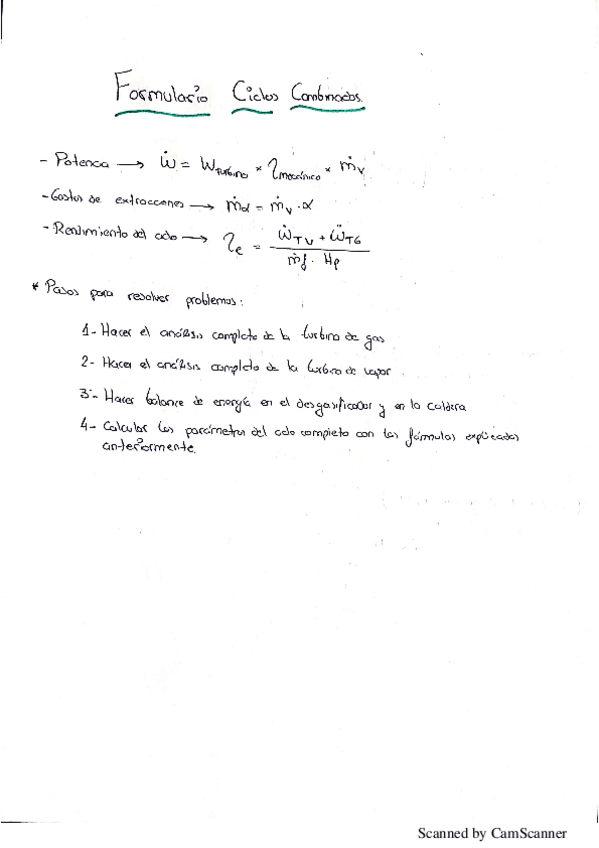 Formulario Ciclos Combinados.
- Potencia → Ẇ = W turbina × η mecánico × ṁv
- Gastos de extracciones → ṁα = ṁv · α
- Rendimiento del ciclo → ηe = (ẆTV + ẆTG) / (ṁf · Hp)
* Pasos para resolver problemas:
1- Hacer el análisis completo de la turbina de gas
2- Hacer el análisis completo de la turbina de vapor
3- Hacer balance de energía en el desgasificador y en la caldera
4- Calcular los parámetros del ciclo completo con las fórmulas explicadas
anteriormente.
Scanned by CamScanner